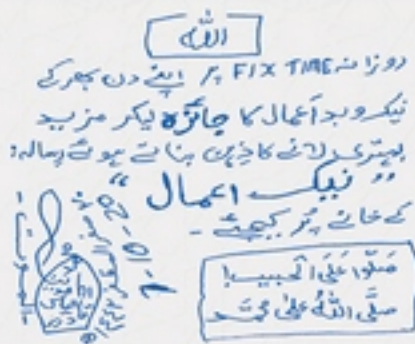 اللہ
روزانہ FIX TIME پر اپنے دن بھر کے
نیک و بد اعمال کا جائزہ لیکر مزید
بہتری لانے کا ذہن بناتے ہوئے رسالہ:
”نیک اعمال“
کے خانے پُر کیجئے ۔
صَلُّوْا عَلَی الْحَبِیب!
صلَّی اللہُ علٰی محمَّد